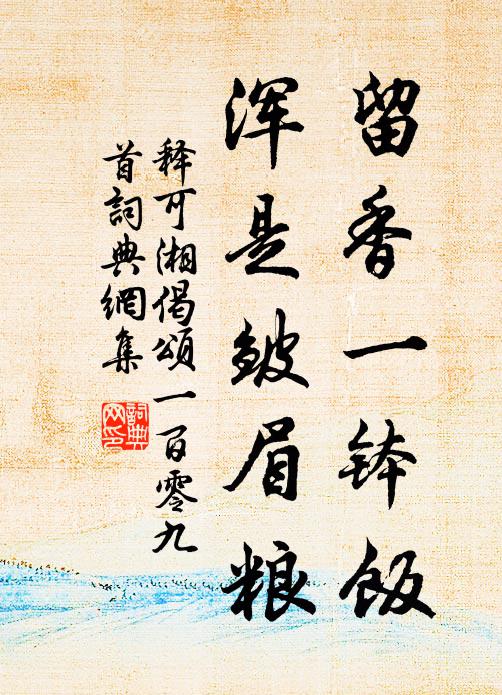 留香一钵饭
浑是皱眉粮
释可湘偈颂一百零九
首詞典網集
詞典网印